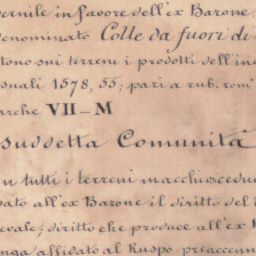 vernile in favore dell'ex Barone.
denominato Colle da fuori di
tono sui terreni i prodotti dell'in
suali 1578, 55; pari a rub. rom.
arche VII – M
suddetta Comunità
tutti i terreni
dato all'ex Barone il diritto del
evale; diritto che produce all'ex
affidato al Ruspo preaccenn